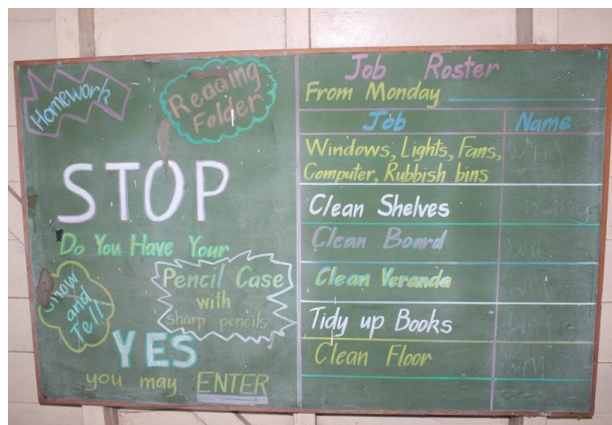 Homework
Reading
Folder
STOP
Do You Have Your
Show
and
Tell
Pencil Case
with
sharp pencils
YES
you may ENTER
Job Roster
From Monday
Job Name
Windows, Lights, Fans,
Computer, Rubbish bins
Clean Shelves
Clean Board
Clean Veranda
Tidy up Books
Clean Floor